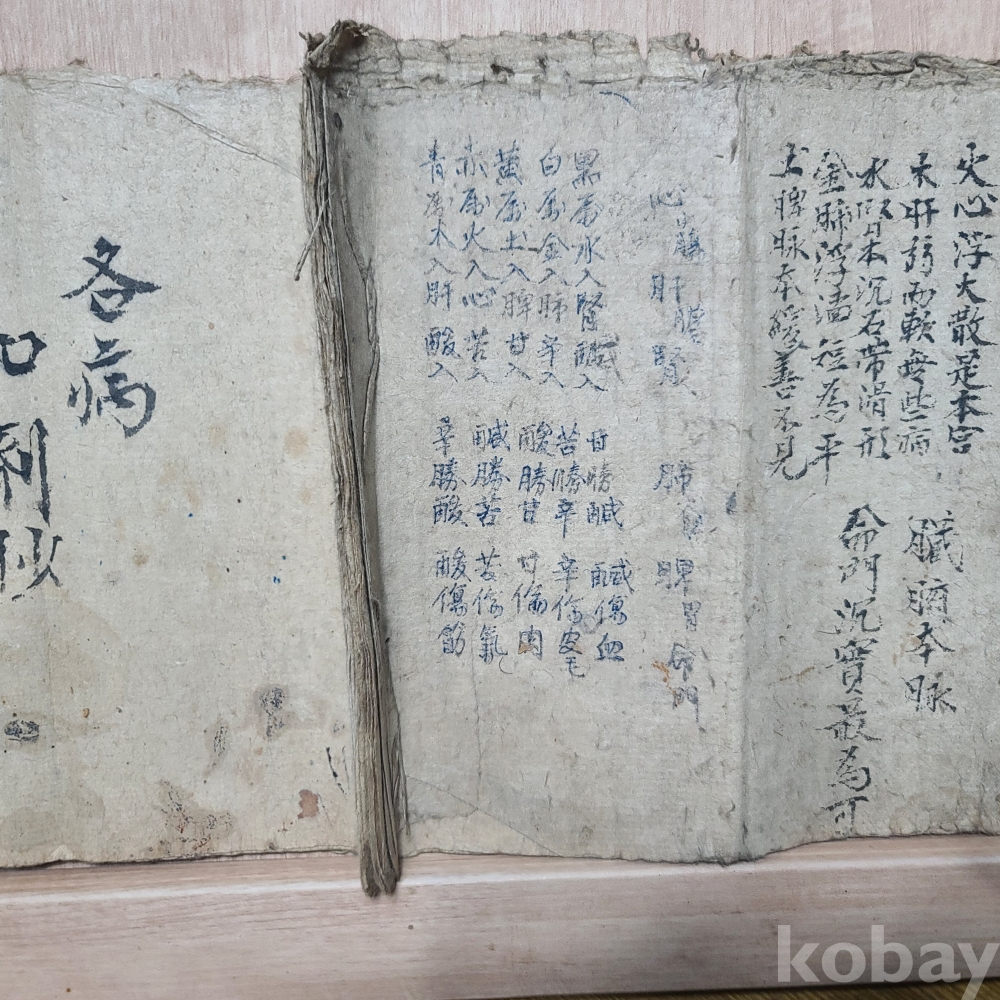 火心浮大散是本宮
木肝弱而軟無些病
水腎本沉石帶滑形
金肺浮濇短為平
土脾脉本緩善不見
臟腑本脉
命門沉實最為可
肝膽 腎 肺 脾胃 命門
黑属水入腎入 甘勝醎 醎傷血
白属金入肺辛入 苦勝辛 辛傷皮毛
黃属土入脾甘入 酸勝甘 甘傷肉
赤属火入心苦入 醎勝苦 苦傷氣
青為木入肝酸入 辛勝酸 酸傷筋
各病
kobay